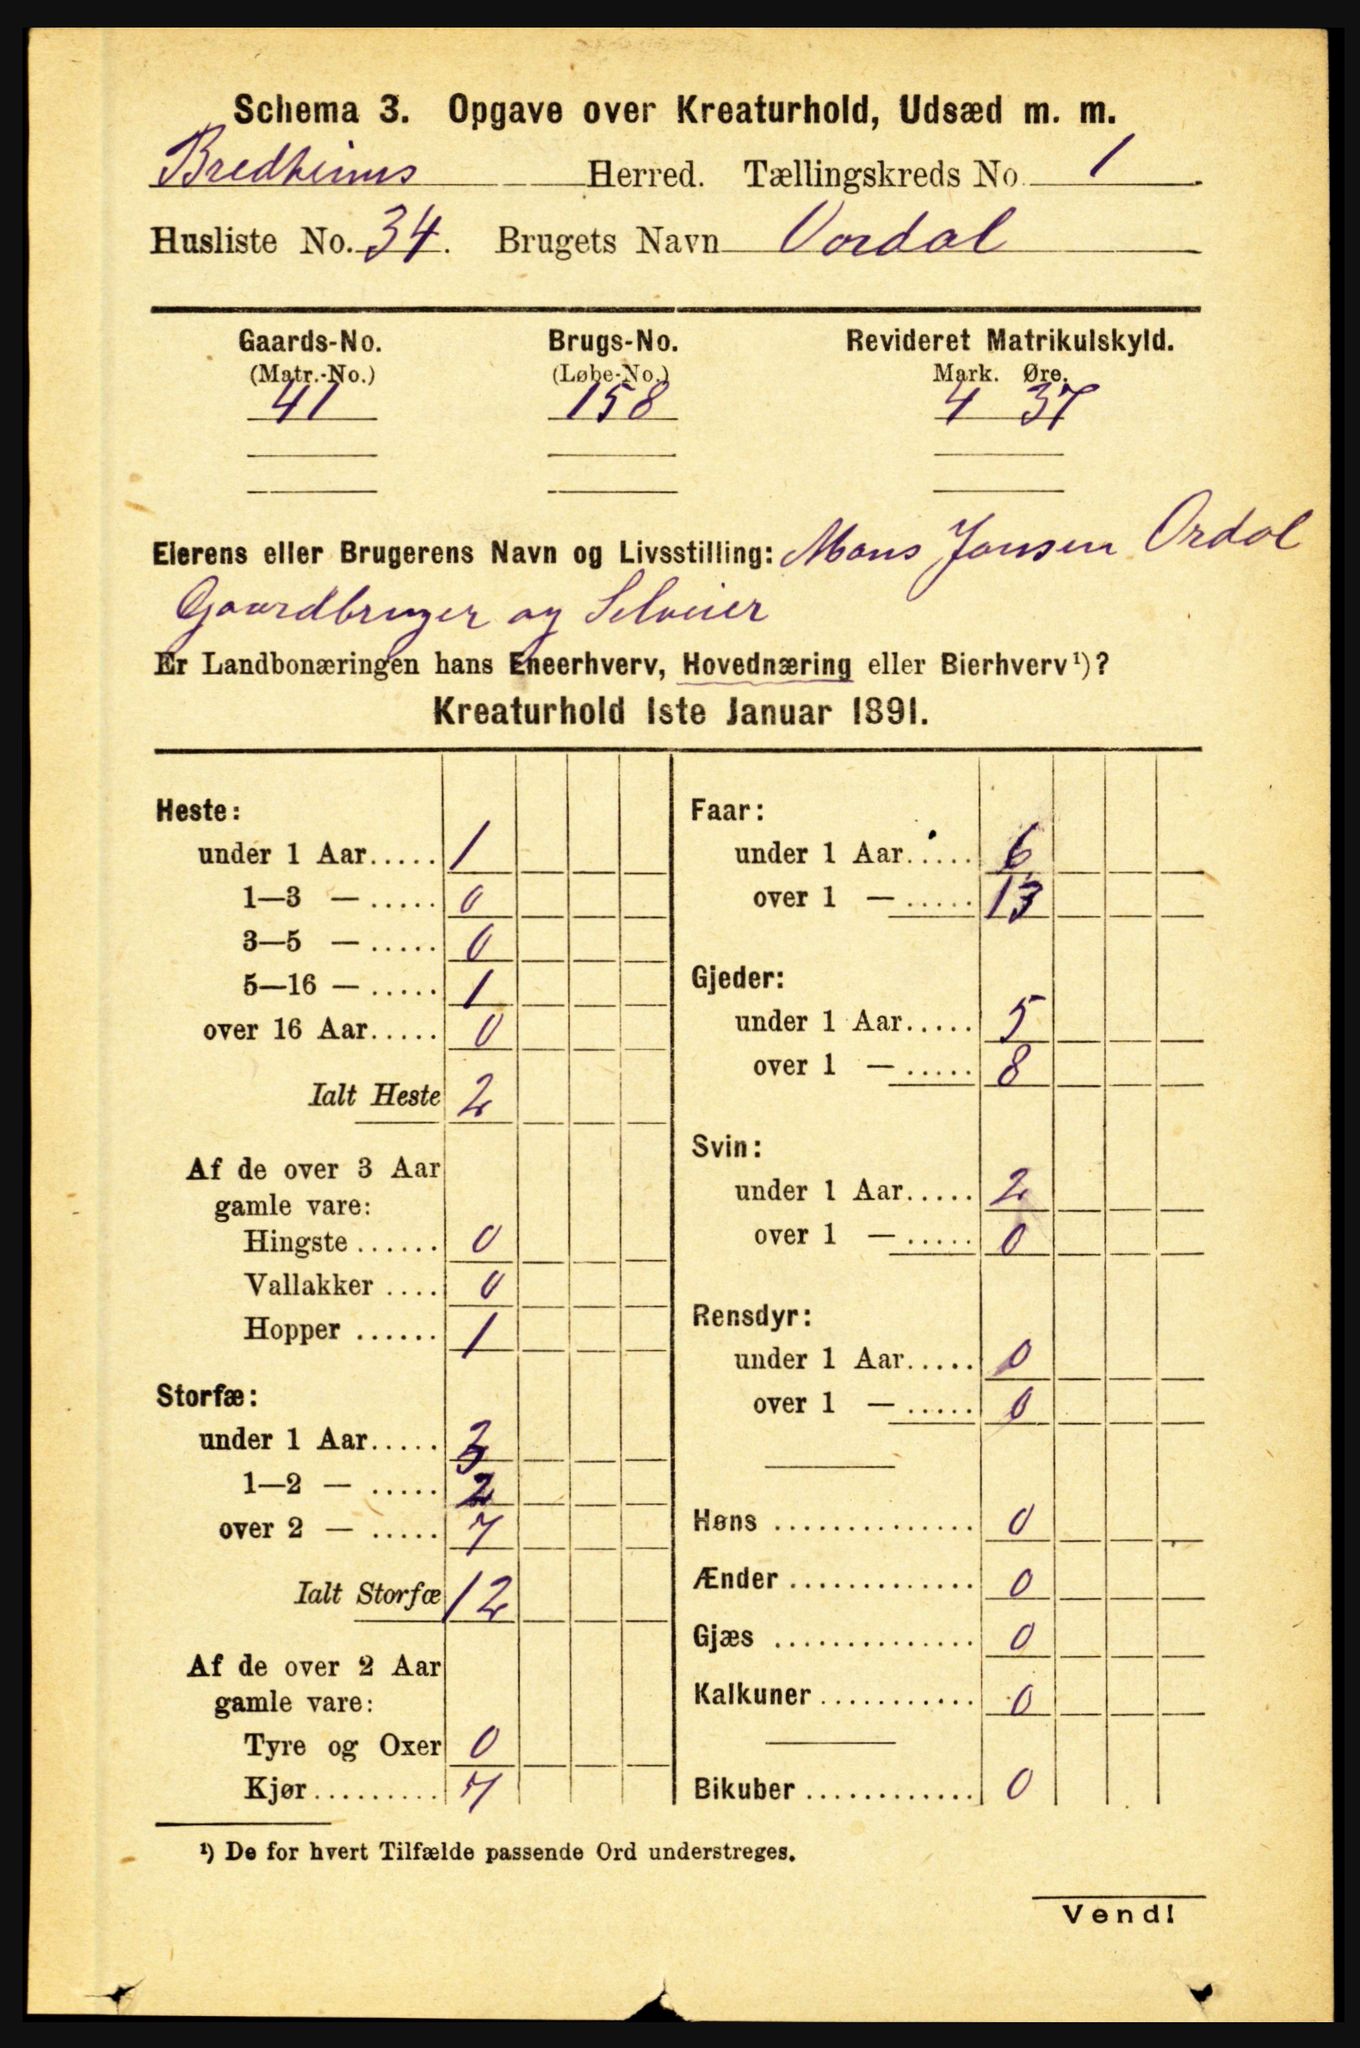 Schema 3. Opgave over Kreaturhold, Udsæd m. m.
Bredheims Herred. Tællingskreds No. 1
Husliste No. 34. Brugets Navn Vordal
Gaards-No. Brugs-No. Revideret Matrikulskyld.
(Matr.-No.) (Løbe-No.) Mark. Øre.
41 158 4 37
Eierens eller Brugerens Navn og Livsstilling: Mons Jonsen Ordal
Gaardbruger og Selveier
Er Landbonæringen hans Eneerhverv, Hovednæring eller Bierhverv¹)?
Kreaturhold 1ste Januar 1891.
Heste:
under 1 Aar..... 1
1—3 — ..... 0
3—5 — ..... 0
5—16 — ..... 1
over 16 Aar..... 0
Ialt Heste 2
Af de over 3 Aar
gamle vare:
Hingste ...... 0
Vallakker .... 0
Hopper ...... 1
Storfæ:
under 1 Aar..... 3
1—2 — ..... 2
over 2 — ..... 7
Ialt Storfæ 12
Af de over 2 Aar
gamle vare:
Tyre og Oxer 0
Kjør......... 7
Faar:
under 1 Aar..... 6
over 1 — ..... 13
Gjeder:
under 1 Aar..... 5
over 1 — ..... 8
Svin:
under 1 Aar..... 2
over 1 — ..... 0
Rensdyr:
under 1 Aar..... 0
over 1 — ..... 0
Høns ............... 0
Ænder .............. 0
Gjæs ............... 0
Kalkuner............ 0
Bikuber ............. 0
¹) De for hvert Tilfælde passende Ord understreges.
Vend!